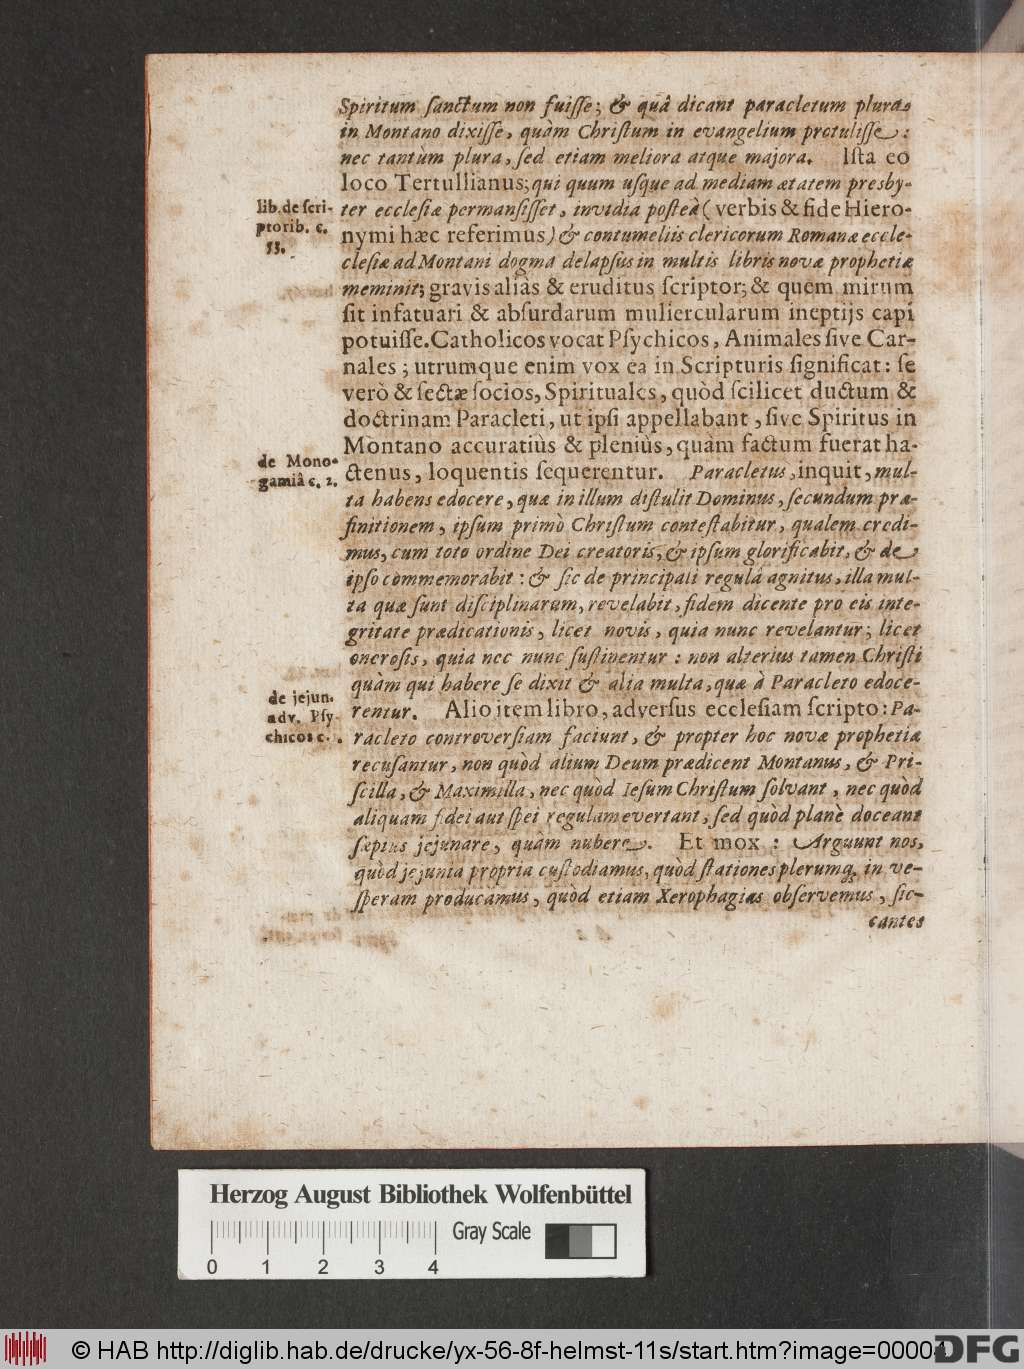 Spiritum sanctum non fuisse; & quâ dicant paracletum plura
in Montano dixisse, quàm Christum in evangelium protulisse:
nec tantùm plura, sed etiam meliora atque majora. Ista eo
loco Tertullianus; qui quum usque ad mediam ætatem presby-
lib. de scri-
ptorib. c.
53.
ter ecclesiæ permansisset, invidia posteà (verbis & fide Hiero-
nymi hæc referimus) & contumeliis clericorum Romanæ eccle-
clesiæ ad Montani dogma delapsus in multis libris novæ prophetiæ
meminit; gravis aliàs & eruditus scriptor; & quem mirum
sit infatuari & absurdarum muliercularum ineptijs capi
potuisse. Catholicos vocat Psychicos, Animales sive Car-
nales; utrumque enim vox ea in Scripturis significat: se
verò & sectæ socios, Spirituales, quòd scilicet ductum &
doctrinam Paracleti, ut ipsi appellabant, sive Spiritus in
Montano accuratiùs & pleniùs, quàm factum fuerat ha-
de Mono-
gamiâ c. 2.
ctenus, loquentis sequerentur. Paracletus, inquit, mul-
ta habens edocere, quæ in illum distulit Dominus, secundum præ-
finitionem, ipsum primò Christum contestabitur, qualem credi-
mus, cum toto ordine Dei creatoris, & ipsum glorificabit, & de
ipso commemorabit: & sic de principali regulâ agnitus, illa mul-
ta quæ sunt disciplinarum, revelabit, fidem dicente pro eis inte-
gritate prædicationis, licet novis, quia nunc revelantur; licet
onerosis, quia nec nunc sustinentur: non alterius tamen Christi
quàm qui habere se dixit & alia multa, quæ à Paracleto edoce-
de jejun.
adv. Psy-
chicos c. .
rentur. Alio item libro, adversus ecclesiam scripto: Pa-
racleto controversiam faciunt, & propter hoc novæ prophetiæ
recusantur, non quòd alium Deum prædicent Montanus, & Pri-
scilla, & Maximilla, nec quòd Iesum Christum solvant, nec quòd
aliquam fidei aut spei regulam evertant, sed quòd planè doceant
sæpius jejunare, quàm nubere. Et mox: Arguunt nos,
quòd jejunia propria custodiamus, quòd stationes plerumq; in ve-
speram producamus, quòd etiam Xerophagias observemus, sic-
cantes
Herzog August Bibliothek Wolfenbüttel
Gray Scale
0 1 2 3 4
© HAB http://diglib.hab.de/drucke/yx-56-8f-helmst-11s/start.htm?image=00004
DFG